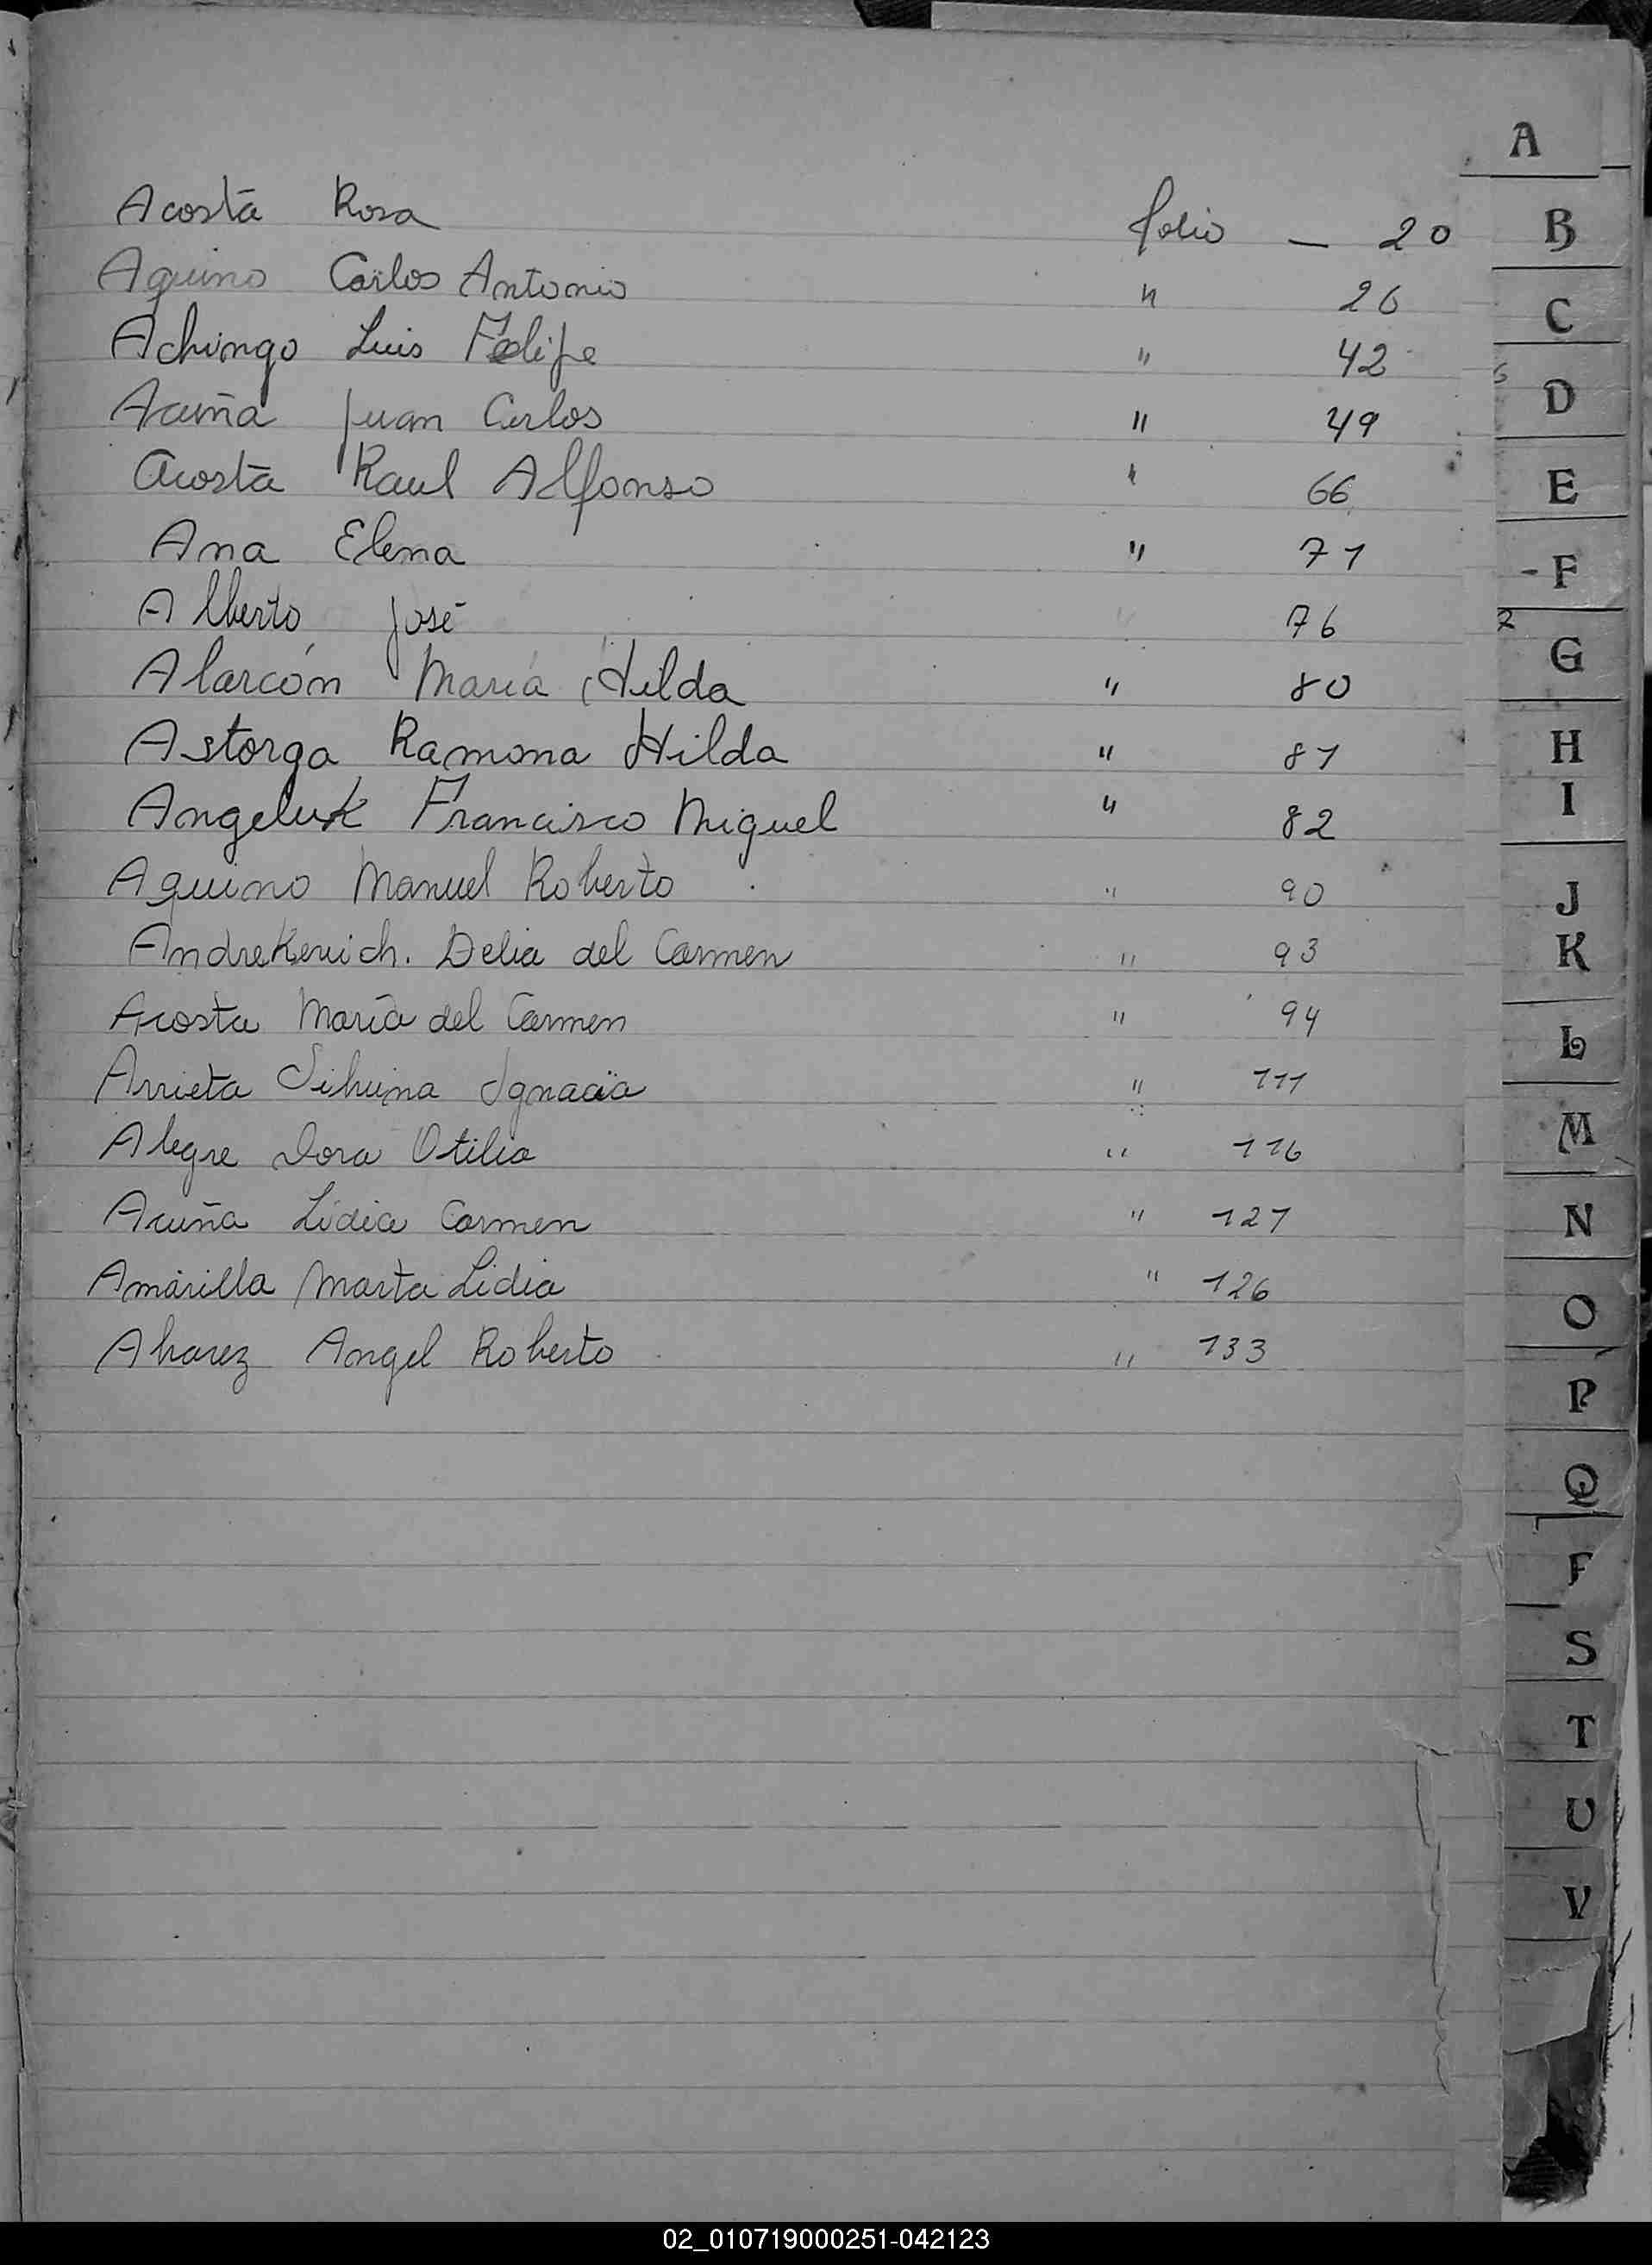 A
Acosta Rosa folio — 20
Aquino Carlos Antonio " 26
Achingo Luis Felipe " 42
Acuña Juan Carlos " 49
Acosta Raul Alfonso " 66
Ana Elena " 71
Alberto José " 76
Alarcón María Hilda " 80
Astorga Ramona Hilda " 81
Angeluk Francisco Miguel " 82
Aquino Manuel Roberto " 90
Andrekevich. Delia del Carmen " 93
Acosta María del Carmen " 94
Arrieta Ignacia " 111
Alegre Dora Otilia " 116
Acuña Lidia Carmen " 121
Amarilla Marta Lidia " 126
Alvarez Angel Roberto " 133
B
C
D
E
F
G
H
I
J
K
L
M
N
O
P
Q
S
T
U
V
02_010719000251-042123